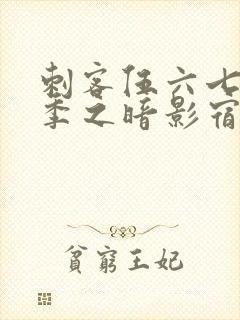 刺客伍六七
季之暗影宿
貧窮王妃